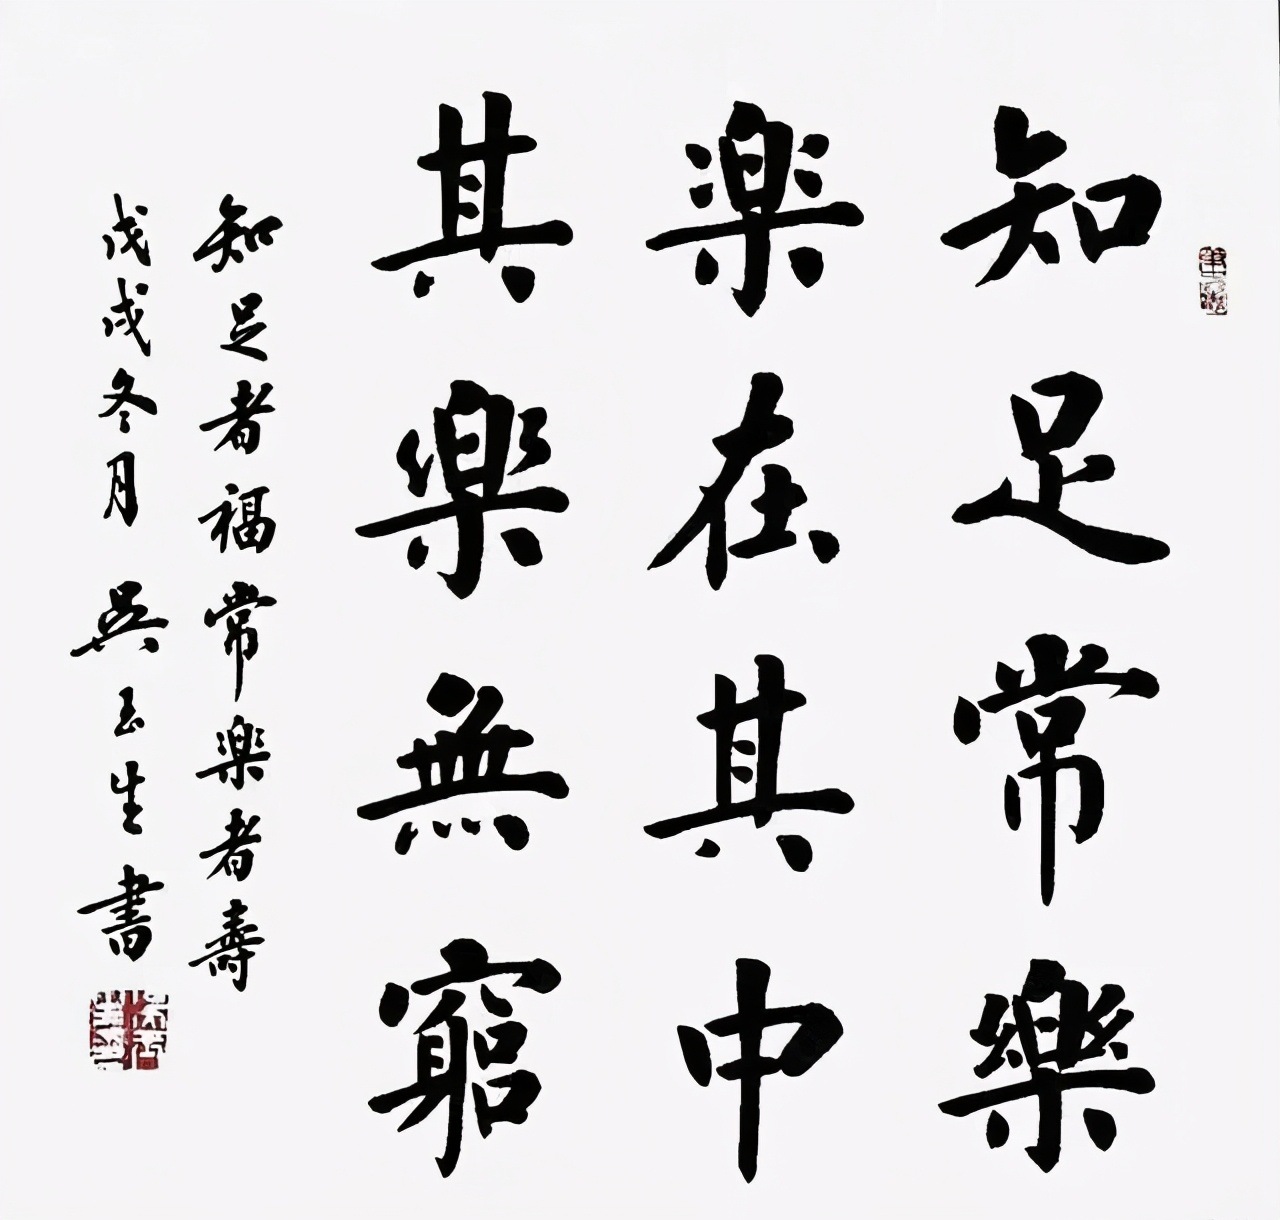 知足常樂
楽在其中
其樂無窮
知足者福常楽者壽
戊戌冬月吳玉生書